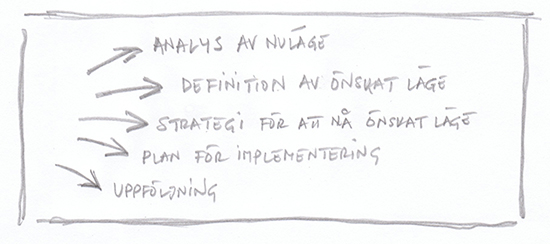 ANALYS AV NULÄGE
DEFINITION AV ÖNSKAT LÄGE
STRATEGI FÖR ATT NÅ ÖNSKAT LÄGE
PLAN FÖR IMPLEMENTERING
UPPFÖLJNING